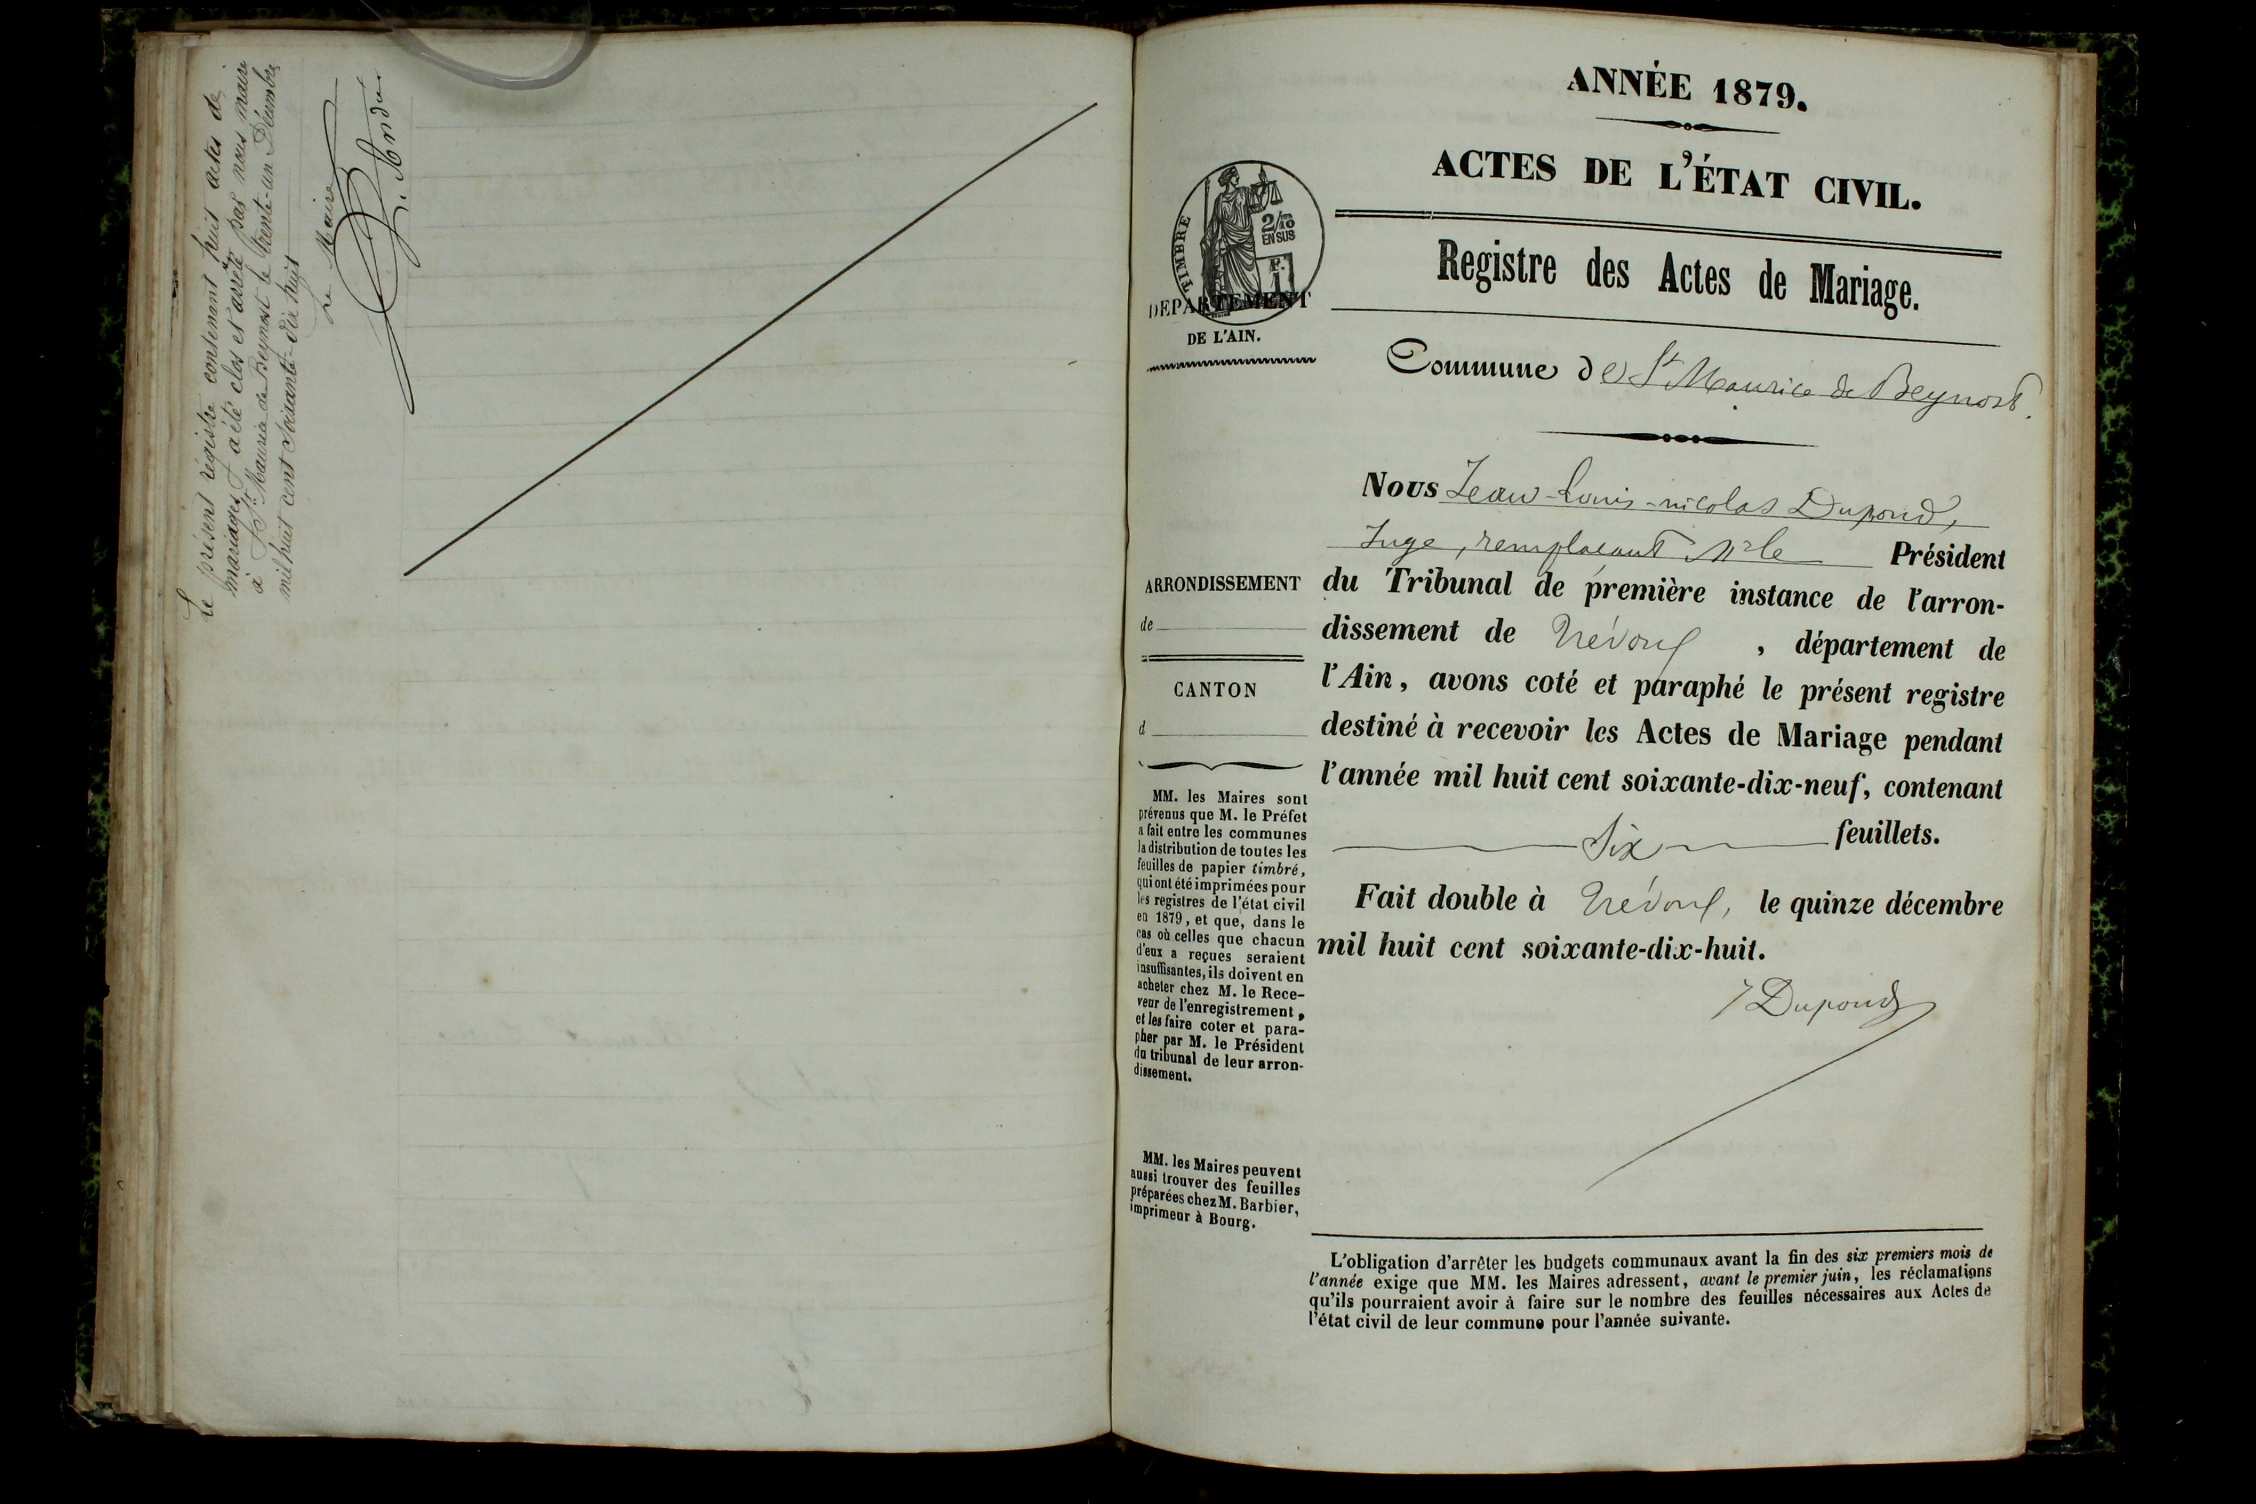 Le présent régistre contenant huit actes de
mariages, a été clos et arrêté par nous maire
à St Maurice de Beynost le trente-un Décembre
mil huit cent soixante-dix huit
Le Maire
ANNÉE 1879.
ACTES DE L'ÉTAT CIVIL.
Registre des Actes de Mariage.
TIMBRE
2/10
EN SUS
DEPARTEMENT
DE L'AIN.
Commune de St Maurice de Beynost.
Nous Jean-Louis-nicolas Dupond,
Juge, remplacant Mr le Président
du Tribunal de première instance de l'arron-
dissement de Trévoux, département de
l'Ain, avons coté et paraphé le présent registre
destiné à recevoir les Actes de Mariage pendant
l'année mil huit cent soixante-dix-neuf, contenant
Six feuillets.
Fait double à Trévoux, le quinze décembre
mil huit cent soixante-dix-huit.
Dupond
ARRONDISSEMENT
de
CANTON
d
MM. les Maires sont
prévenus que M. le Préfet
a fait entre les communes
la distribution de toutes les
feuilles de papier timbré,
qui ont été imprimées pour
les registres de l'état civil
en 1879, et que, dans le
cas où celles que chacun
d'eux a reçues seraient
insuffisantes, ils doivent en
acheter chez M. le Rece-
veur de l'enregistrement,
et les faire coter et para-
pher par M. le Président
du tribunal de leur arron-
dissement.
MM. les Maires peuvent
aussi trouver des feuilles
préparées chez M. Barbier,
imprimeur à Bourg.
L'obligation d'arrêter les budgets communaux avant la fin des six premiers mois de
l'année exige que MM. les Maires adressent, avant le premier juin, les réclamations
qu'ils pourraient avoir à faire sur le nombre des feuilles nécessaires aux Actes de
l'état civil de leur commune pour l'année suivante.